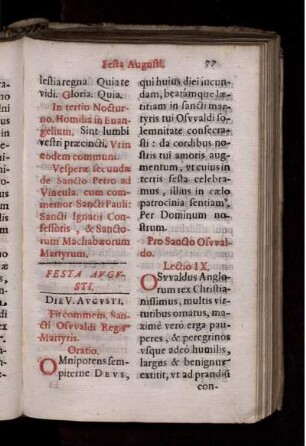 Festa Augusti. 77
lestia regna. Quia te
vidi. Gloria. Quia.
In tertio Noctur-
no. Homilia in Euan-
gelium. Sint lumbi
vestri præcincti. Vt in
eodem communi.
Vesperæ secundæ
de Sancto Petro ad
Vincula cum com-
memor Sancti Pauli:
Sancti Ignatii Con-
fessoris, & Sancto-
rum Machabæorum
Martyrum.
FESTA AVGV-
STI.
DIE V. AVGVSTI.
Fit commem. San-
cti Osvvaldi Regis
Martyris.
Oratio.
OMnipotens sem-
piterne DEVS,
qui huius diei iucun-
dam, beatamque læ-
titiam in sancti mar-
tyris tui Osvvaldi so-
lemnitate consecra-
sti: da cordibus no-
stris tui amoris aug-
mentum, vt cuius in
terris festa celebra-
mus, illius in cælo
patrocinia sentiam⁹.
Per Dominum no-
strum.
Pro Sancto Osvval-
do.
Lectio IX.
OSvvaldus Anglo-
rum rex Christia-
nissimus, multis vir-
tutibus ornatus, ma-
ximè verò erga paupe-
res, & peregrinos
vsque adeo humilis,
largus & benignus
extitit, vt ad prandii
con-